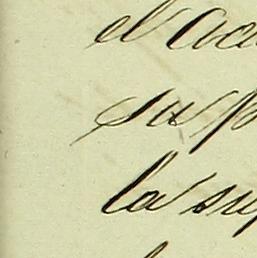 el ac
su p
la sup